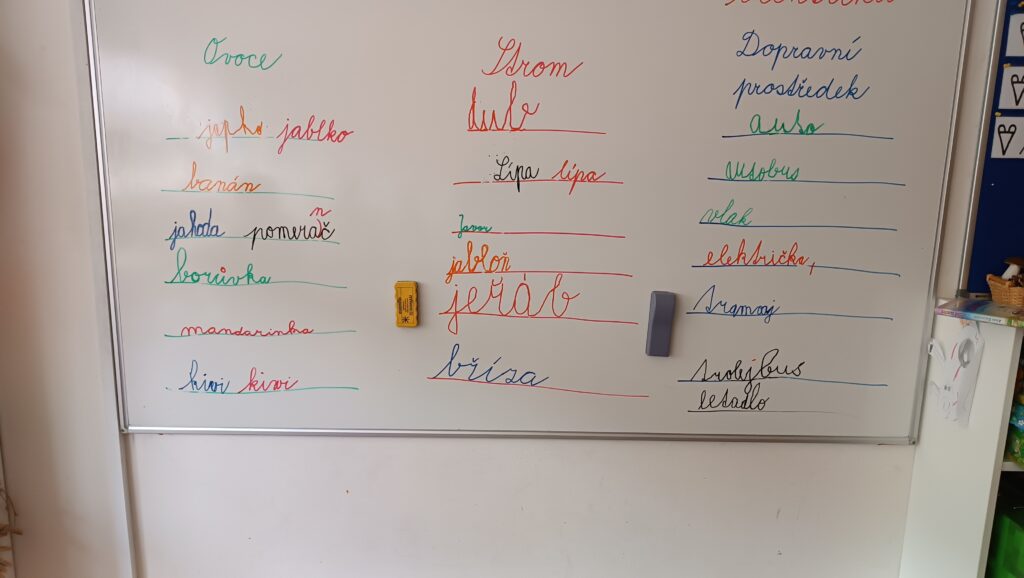 Ovoce
jablko
banán
jahoda pomeranč
borůvka
mandarinka
kiwi kiwi
Strom
dub
Lípa lípa
Javor
jabloň
jeřáb
bříza
Dopravní
prostředek
auto
autobus
vlak
električka,
tramvaj
trolejbus
letadlo